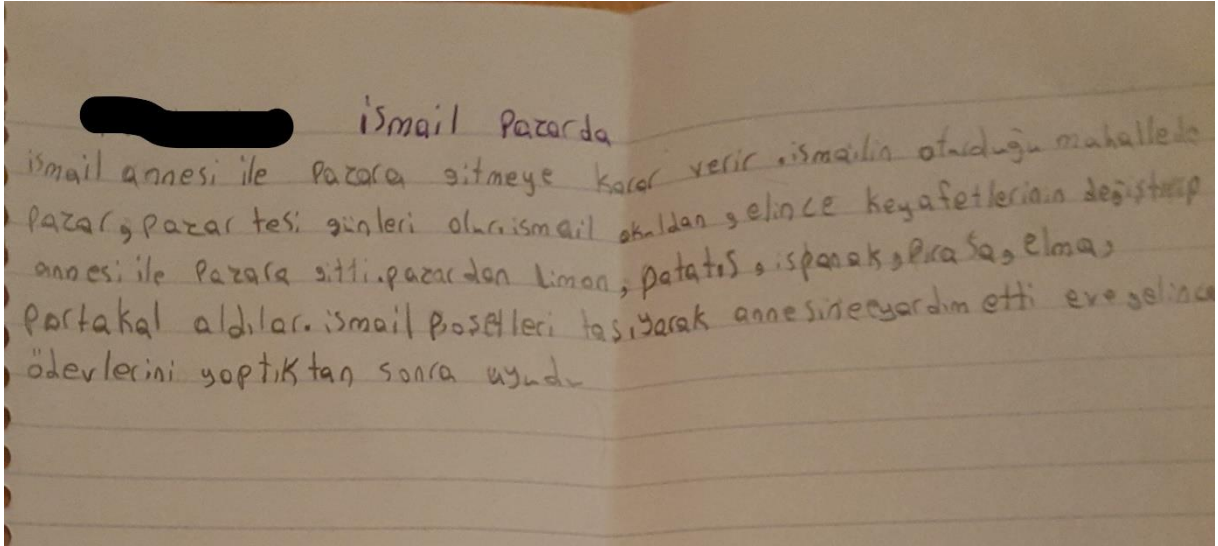 ismail Pazarda
ismail annesi ile Pazara gitmeye karar verir .ismailin oturduğu mahallede
pazar, pazar tesi günleri olur.ismail okuldan gelince keyafetlerinin değiştirip
annesi ile Pazara gitti.pazardan limon, patates, ispanak, pırasa, elma,
portakal aldılar.ismail poşetleri taşıyarak annesine yardım etti eve gelince
ödevlerini yaptıktan sonra uyudu